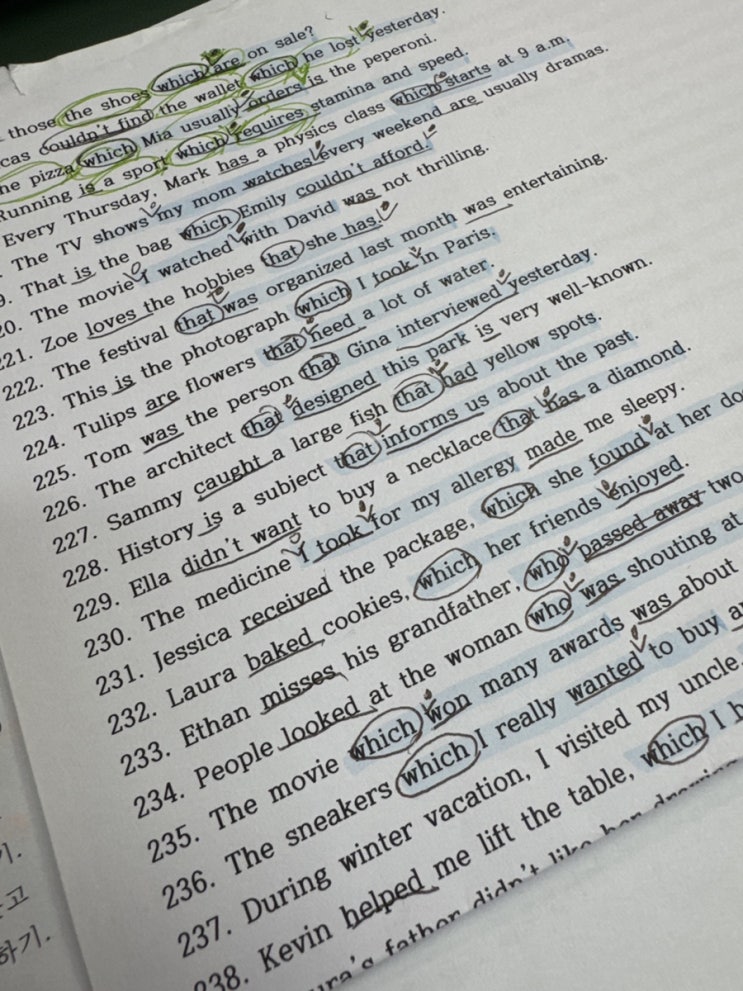 those the shoes which are on sale?
cas couldn't find the wallet which he lost yesterday.
he pizza which Mia usually orders is the peperoni.
Running is a sport which requires stamina and speed.
Every Thursday, Mark has a physics class which starts at 9 a.m.
The TV shows my mom watches every weekend are usually dramas.
9. That is the bag which Emily couldn't afford.
20. The movie I watched with David was not thrilling.
221. Zoe loves the hobbies that she has.
222. The festival that was organized last month was entertaining.
223. This is the photograph which I took in Paris.
224. Tulips are flowers that need a lot of water.
225. Tom was the person that Gina interviewed yesterday.
226. The architect that designed this park is very well-known.
227. Sammy caught a large fish that had yellow spots.
228. History is a subject that informs us about the past.
229. Ella didn't want to buy a necklace that has a diamond.
230. The medicine I took for my allergy made me sleepy.
231. Jessica received the package, which she found at her do
232. Laura baked cookies, which her friends enjoyed.
233. Ethan misses his grandfather, who passed away two
234. People looked at the woman who was shouting at
235. The movie which won many awards was about
236. The sneakers which I really wanted to buy a
237. During winter vacation, I visited my uncle
238. Kevin helped me lift the table, which I h
ra's father didn't like her
기.
고
하기.